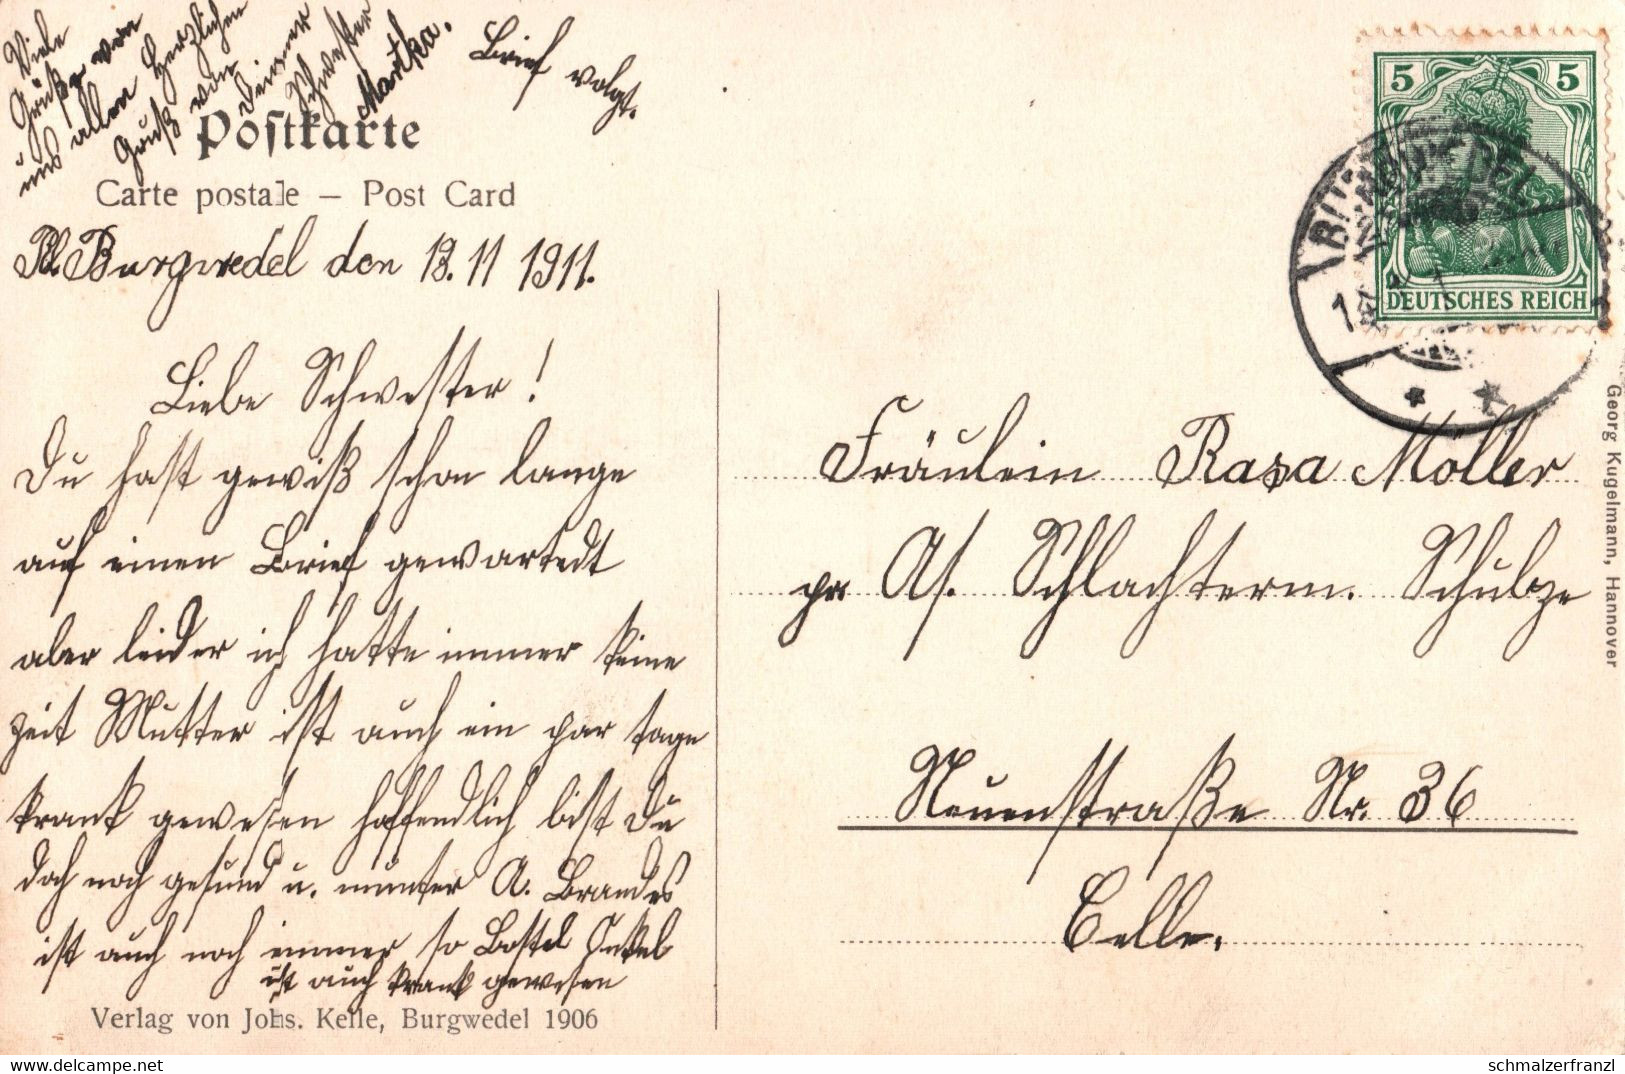 Viele
Grüße von
uns allen Herzlichen
Gruß von
Deiner
Schwester
Martha.
Brief volgt.
Postkarte
Carte postale – Post Card
Burgwedel den 13.11 1911.
Liebe Schwester!
Du hast gewiß schon lange
auf einen Brief gewartedt
aber leider ich hatte immer keine
zeit Mutter ist auch ein par tage
krank gewesen hoffendlich bist Du
doch noch gesund u. munter A. Brandes
ist auch noch immer so Bostel Onkel
ist auch krank gewesen
Verlag von Johs. Kelle, Burgwedel 1906
5 5
DEUTSCHES REICH
Fräulein Rasa Möller
pr Ad. Schlachterm. Schulze
Neuenstraße Nr. 36
Celle.
Georg Kugelmann, Hannover
https://www.delcampe.net
schmalzerfranzl